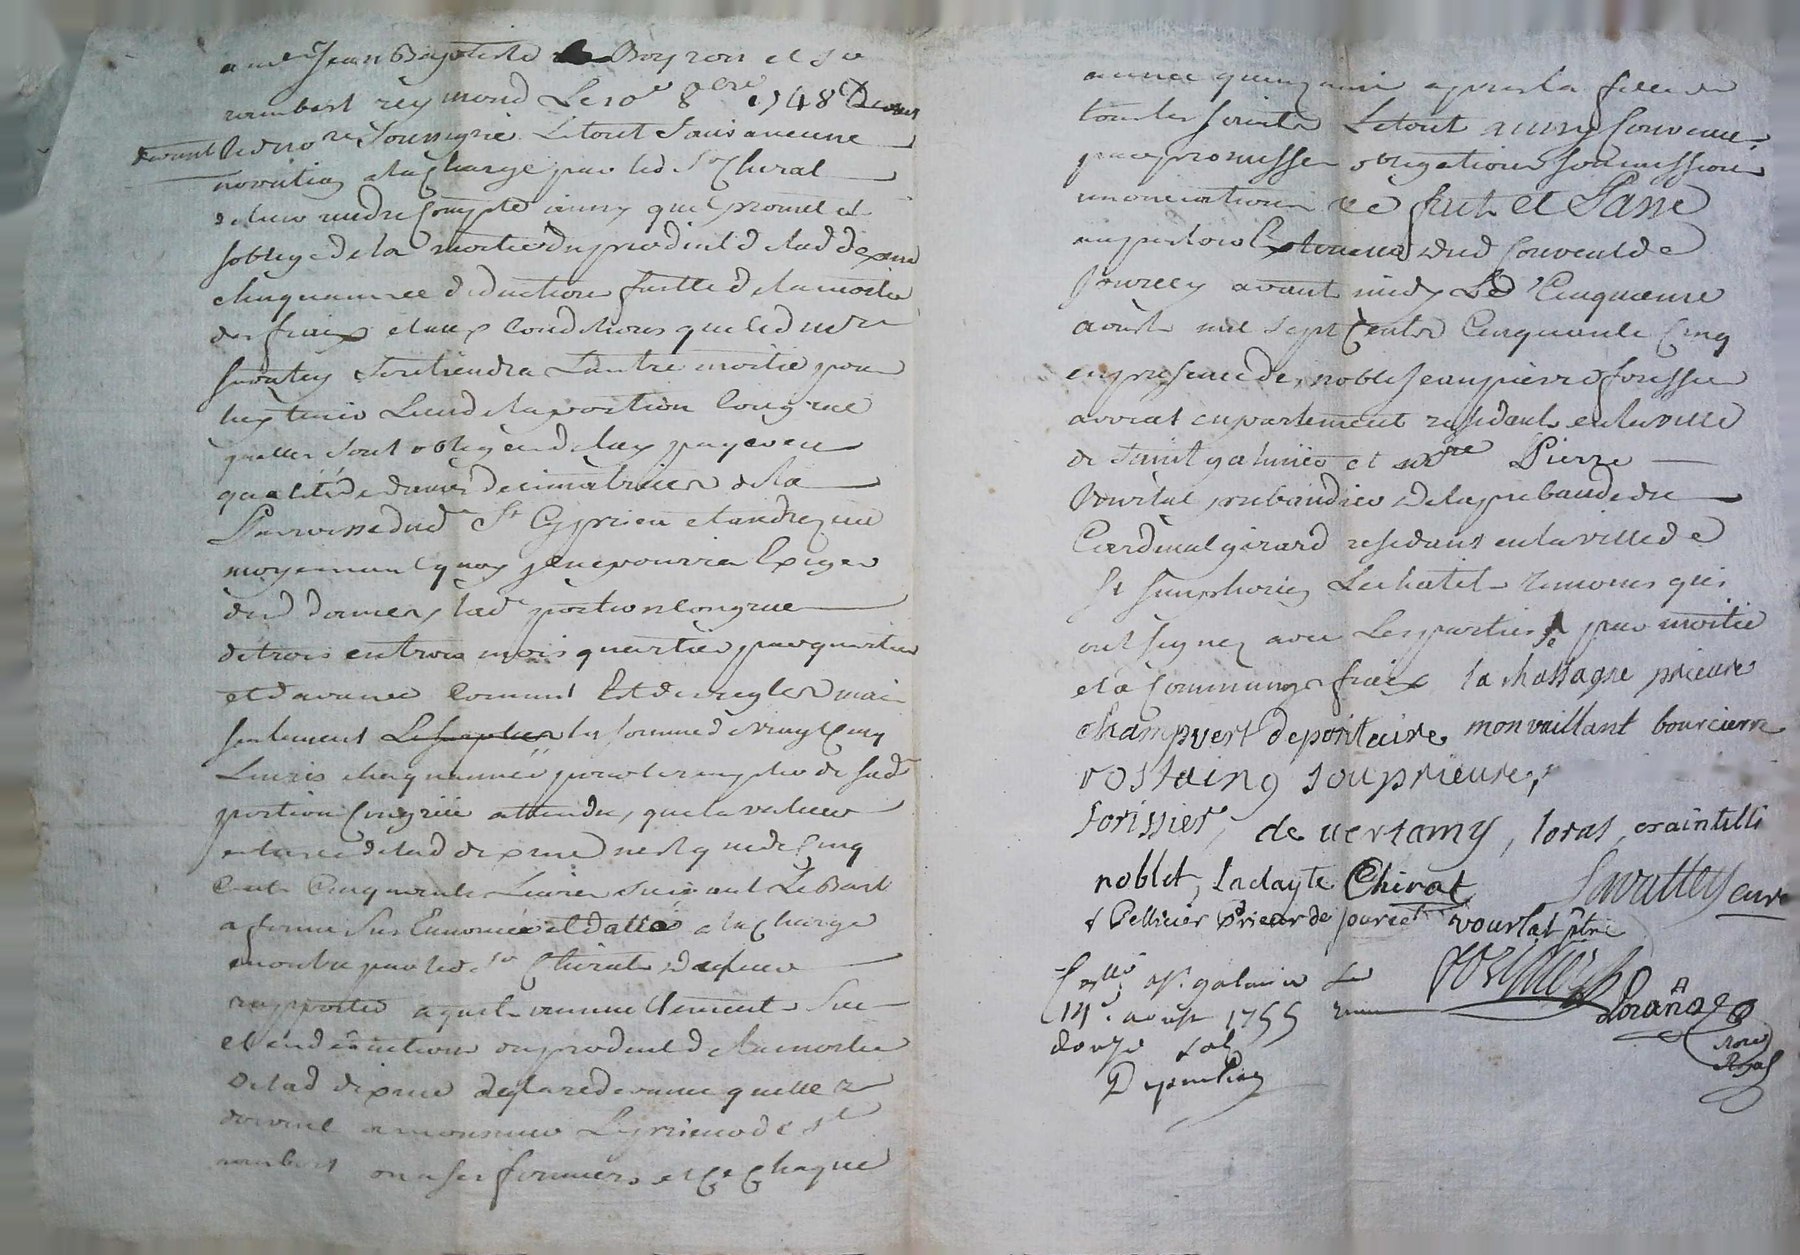 a me Jean Baptiste Boyron et Sr
rambert reymond Le 10e 8bre 1748
Led no.re Soussigné Le tout sans aucune
novation a la Charge par led Sr Chirat
rendre Compte ainsy quil promet et
soblige de la moitié du produit de lad dixme
chaque année deduction faitte de la moitié
des fraix et aux Conditions que led
Savatey retiendra Lautre moitié pour
luy tenir Lieu de la portion Congrue
quelles sont obligées de luy payer en
qualité de dames decimatrices de la
Parroisse dud St Cyprien et andrezieu
moyenant quoy il ne pourra Exiger
desd dames lade portion Congrue
de trois en trois mois quartier par quartier
et davance Comme Est de regle mais
seulement la somme de vingt Cinq
Livres chaque année pour le de sade
portion Congrue attendu que la valeur
de lad dixme nest que de Cinq
Cents Cinquante Livres suivant Le Bail
a ferme sus Enoncé et datté a la Charge
en outre par led Sr Chirat de
rapporter acquit
et en deduction du produit de la moitié
de lad dixme de la redevance quelle
doivent a monsieur Le prieur de St
rambert ou a ses fermiers et Ce Chaque
année quinzaine apres la fette de
tous les saints Le tout ainsy Convenu
par promesses obligations soumissions
renonciations &c fait et Passé
au parloir Exterieur dud Couvent de
Jourcey avant midy Le Cinquieme
aoust mil sept Cents Cinquante Cinq
en presence de noble Jean pierre forissier
avocat en parlement residant en la ville
de Saint galmier et mre Pierre
Vourlat prebandier de la prebande de
Cardinal girard residant en la ville de
St Simphorien Le chatel temoins qui
ont signez avec Les parties par moitié
et a Communs fraix la chassagne prieure
champvert depositaire monvaillant bourciere
rostaing souprieure,
forissier, de vertamy, loras, craintilli
noblet, ladayte Chirat Savattey curé
f Pellicier Prieur de jourcé vourlat ptre
forissier
Con.llé a St galmier Le
14e. aoust 1755 Reçu
douze sols
Deponchon
Nore
Royal